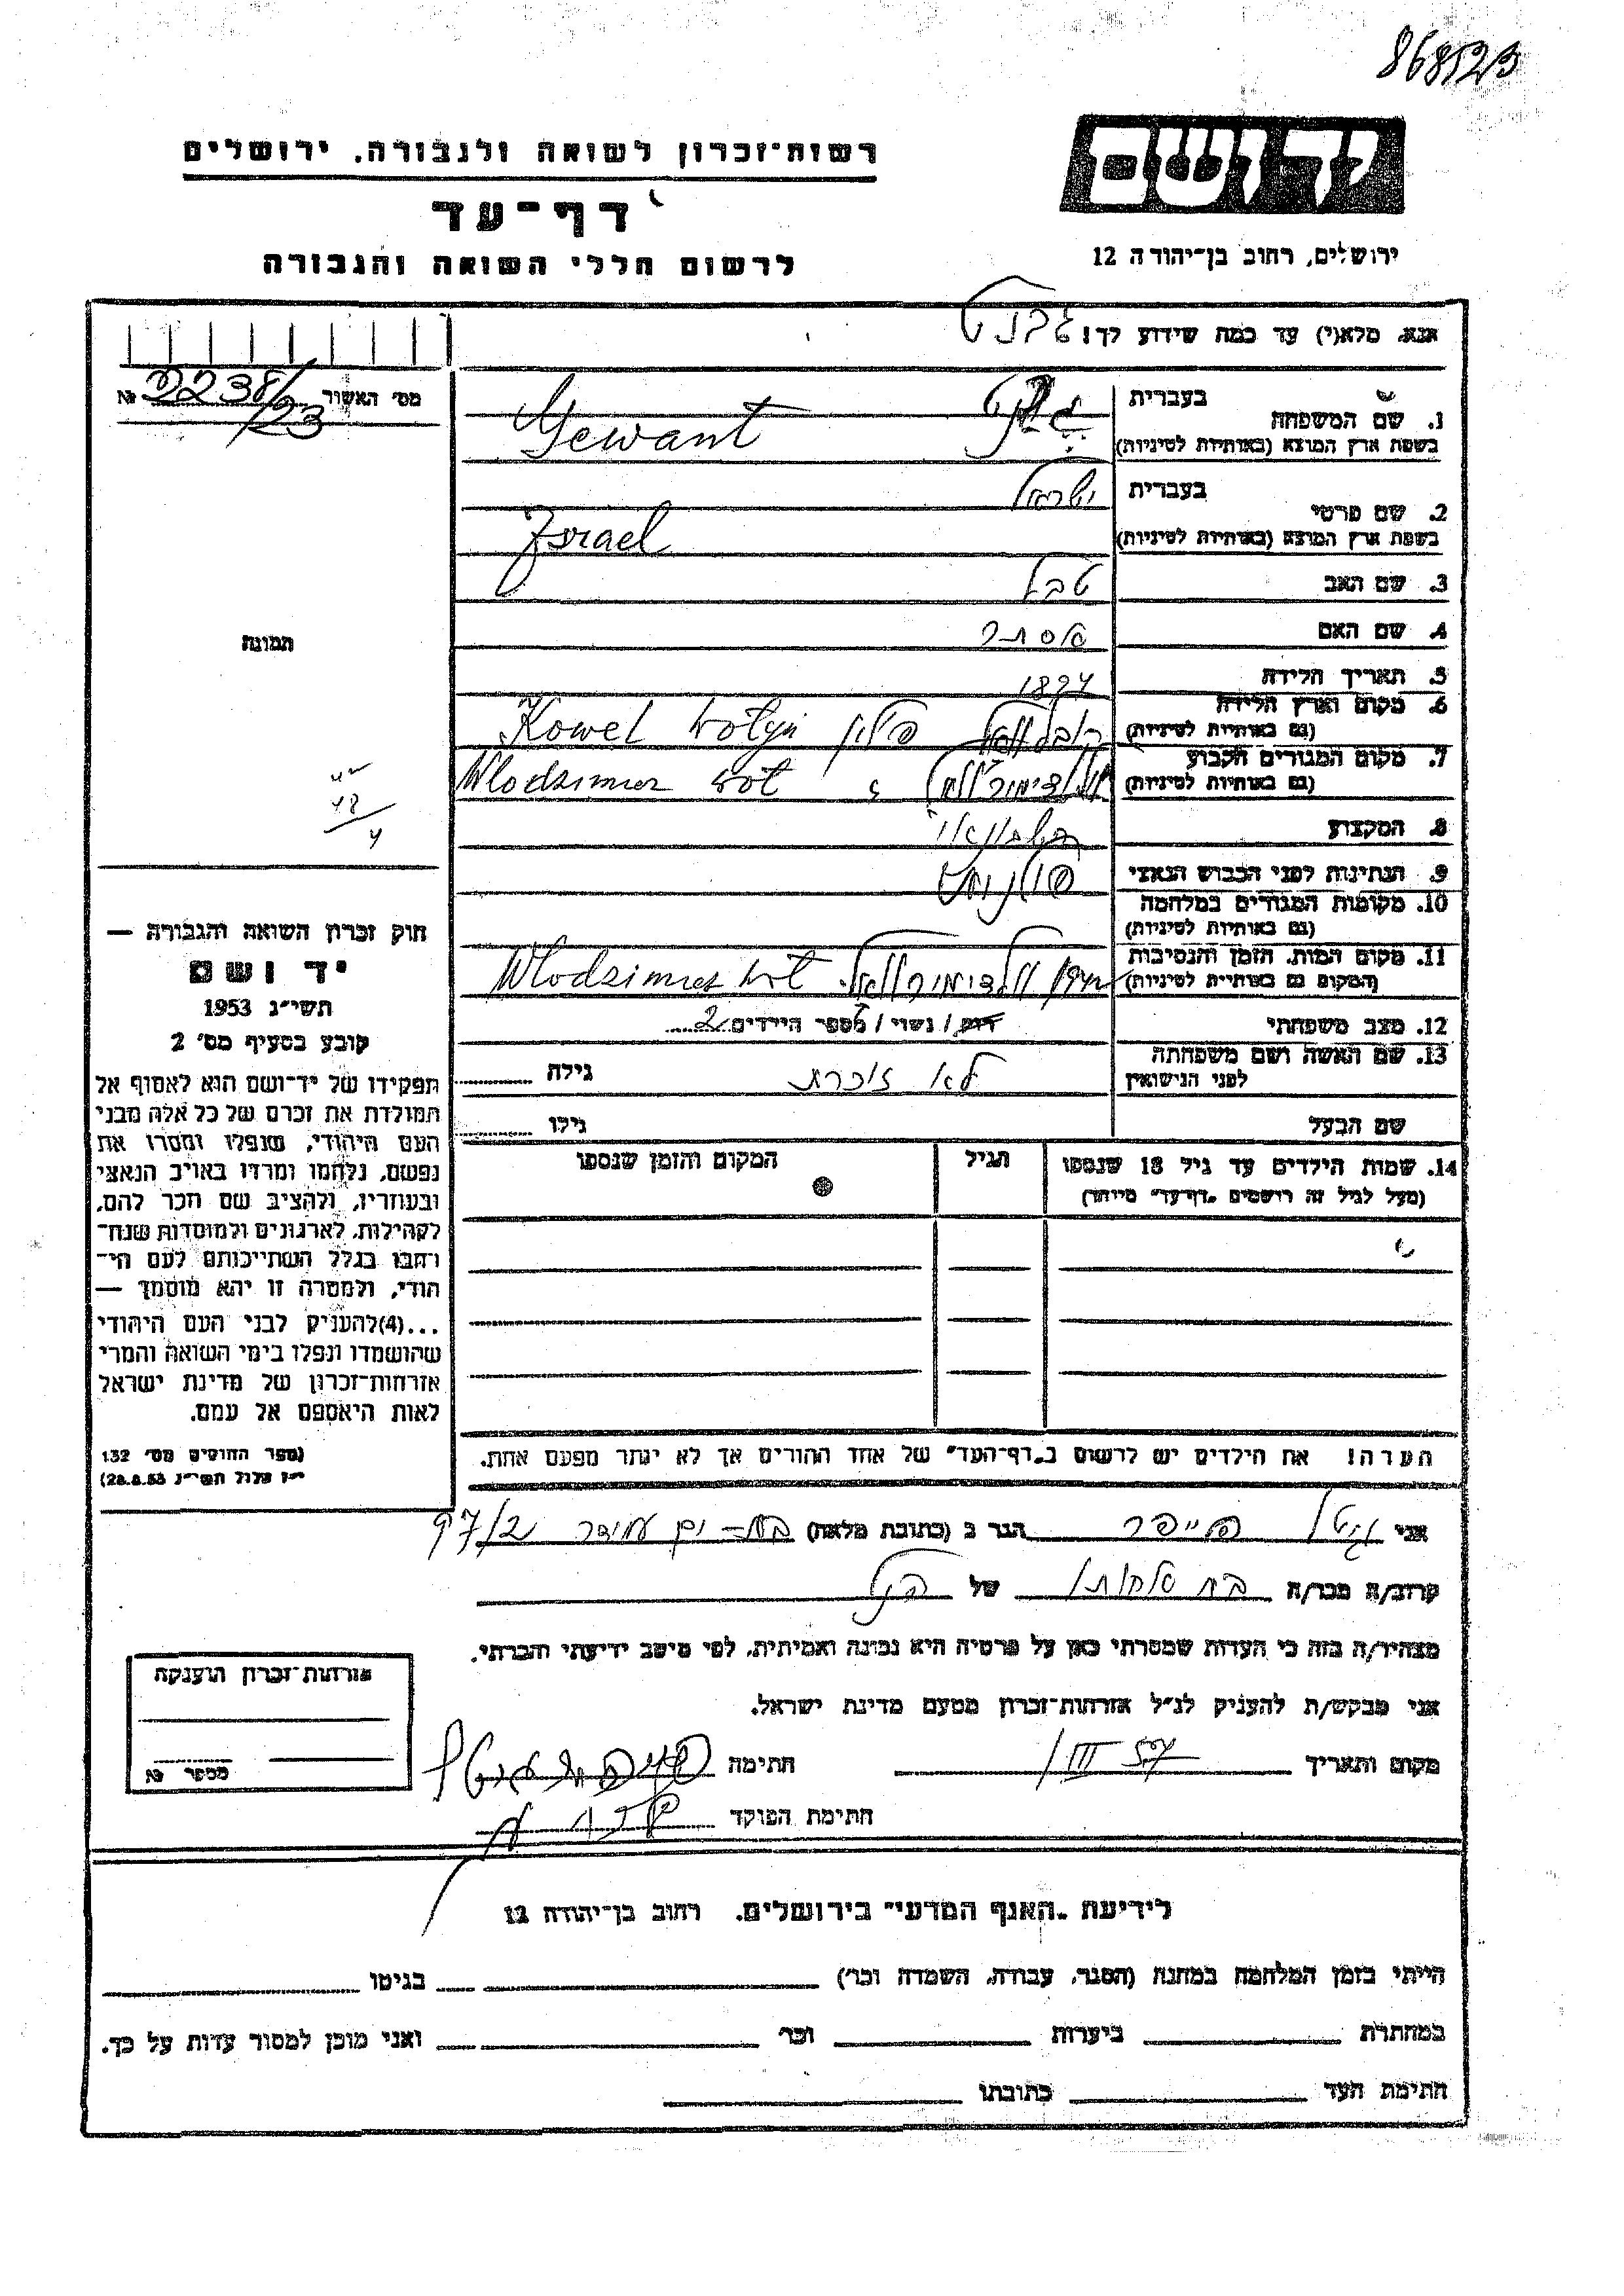 868523
יד ושם
רשות־זכרון לשואה ולגבורה, ירושלים
דף־עד
לרשום חללי השואה והגבורה
ירושלים, רחוב בן־יהודה 12
אנא, מלא(י) עד כמה שידוע לך!
מס׳ האשור 2238/23 №
1. שם המשפחה בעברית
בשפת ארץ המוצא (באותיות לטיניות) Gewant
2. שם פרטי בעברית ישראל
בשפת ארץ המוצא (באותיות לטיניות) Israel
3. שם האב
4. שם האם אסתר
5. תאריך הלידה
6. מקום וארץ הלידה
(גם באותיות לטיניות) פולין Kowel Wołyń
7. מקום המגורים הקבוע
(גם באותיות לטיניות) Włodzimierz Woł
8. המקצוע
9. הנתינות לפני הכבוש הנאצי פולנית
10. מקומות המגורים במלחמה
(גם באותיות לטיניות)
11. מקום המות, הזמן והנסיבות
(המקום גם באותיות לטיניות) Włodzimierz Woł
12. מצב משפחתי רווק / נשוי / מספר הילדים 2
13. שם האשה ושם משפחתה
לפני הנישואין לא זוכרת גילה
שם הבעל גילו
14. שמות הילדים עד גיל 18 שנספו
(מעל לגיל זה רושמים „דף־עד״ מיוחד)
הגיל
המקום והזמן שנספו
הערה! את הילדים יש לרשום ב„דף־העד״ של אחד ההורים אך לא יותר מפעם אחת.
תמונה
חוק זכרון השואה והגבורה —
יד ושם
תשי״ג 1953
קובע בסעיף מס׳ 2
תפקידו של יד־ושם הוא לאסוף אל
המולדת את זכרם של כל אלה מבני
העם היהודי, שנפלו ומסרו את
נפשם, נלחמו ומרדו באויב הנאצי
ובעוזריו, ולהציב שם וזכר להם,
לקהילות, לארגונים ולמוסדות שנח־
רבו בגלל השתייכותם לעם הי־
הודי, ולמטרה זו יהא מוסמך —
...(4)להעניק לבני העם היהודי
שהושמדו ונפלו בימי השואה והמרי
אזרחות־זכרון של מדינת ישראל
לאות היאספם אל עמם.
(ספר החוקים מס׳ 132
י״ז אלול תשי״ג 28.8.53)
אני גיטל פייפר הגר ב (כתובת מלאה) בת־ים
קרוב/ה מכר/ה של
מצהיר/ה בזה כי העדות שמסרתי כאן על פרטיה היא נכונה ואמיתית, לפי מיטב ידיעתי והכרתי.
אני מבקש/ת להעניק לנ״ל אזרחות־זכרון מטעם מדינת ישראל.
מקום ותאריך חתימה
חתימת הפוקד
אזרחות־זכרון הוענקה
מספר №
לידיעת „האגף המדעי״ בירושלים, רחוב בן־יהודה 12
הייתי בזמן המלחמה במחנה (הסגר, עבודה, השמדה וכו׳) בגיטו
במחתרת ביערות וכו׳ ואני מוכן למסור עדות על כך.
חתימת העד כתובתו